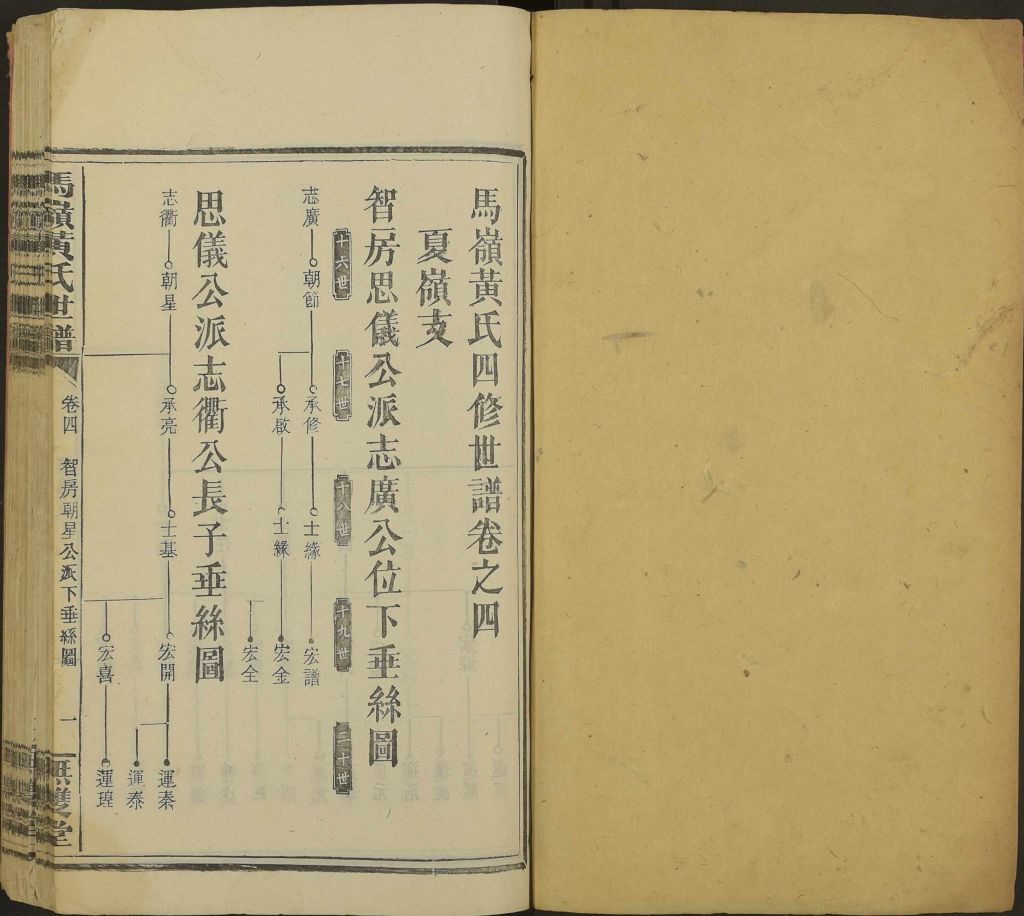 馬嶺黃氏四修世譜卷之四
夏嶺支
智房思儀公派志廣公位下垂絲圖
十六世
十七世
十八世
十九世
二十世
志廣 朝節 承修 士緣 宏譜
承啟 士緣 宏金
宏全
思儀公派志衢公長子垂絲圖
志衢 朝星 承亮 士基 宏開 運秦
運泰
宏喜 運瑝
馬嶺黃氏世譜
卷四 智房朝星公派下垂絲圖 一
無雙堂